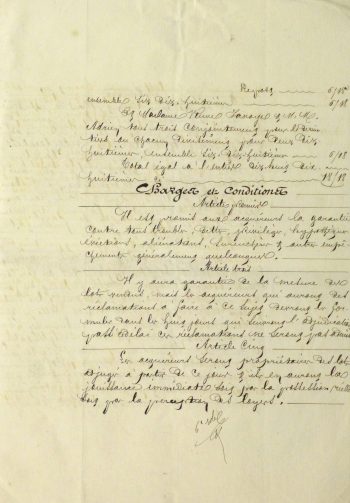 Report 6/18
ensemble six dix-huitième 6/18
Et Madame Veuve & M. M.
Adney tous trois conjointement pour le
tiers ou chacun divisément pour deux dix
huitième, ensemble six dix-huitième 6/18
Total égal à l'entier dix huit dix
huitième 18/18
Charges et Conditions
Article premier
Il est promis aux acquéreurs la garantie
contre tous troubles, dettes, privilèges, hypothèques
évictions, aliénations, surenchères & autres empê
chements généralement quelconques.
Article trois
Il y aura garantie de la mesure des
lots vendus, mais les acquéreurs qui auront des
réclamations à faire à ce sujet devront le for
muler dans les cinq jours qui suivront l'adjudication
passé délai ces réclamations ne seront pas admises
Article Cinq
Les acquéreurs seront propriétaires des lots
adjugés à partir de ce jour & ils en auront la
jouissance immédiate soit par la possession réelle
soit par la perception des loyers.